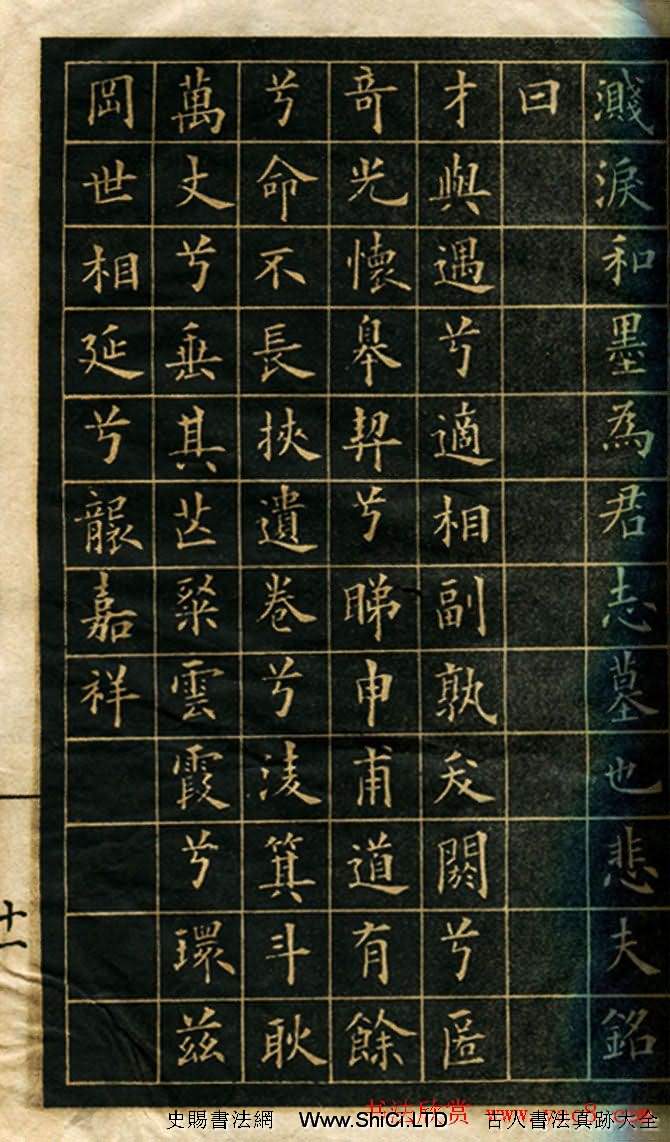 濺淚和墨為君志墓也悲夫銘
曰
才與遇兮適相副孰夭閼兮匿
奇光懷皋契兮睇申甫道有餘
兮命不長挾遺卷兮淩箕斗耿
萬丈兮垂其芒粲雲霞兮環茲
岡世相延兮襲嘉祥
十一
书法欣赏 www.yac8.com
史賜書法網 Www.ShiCi.LTD 古人書法真跡大全